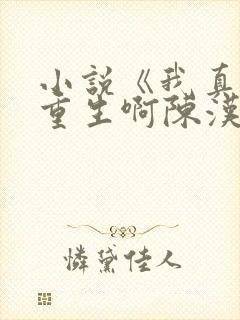 小說《我真
重生啊陳漢
憐黛佳人